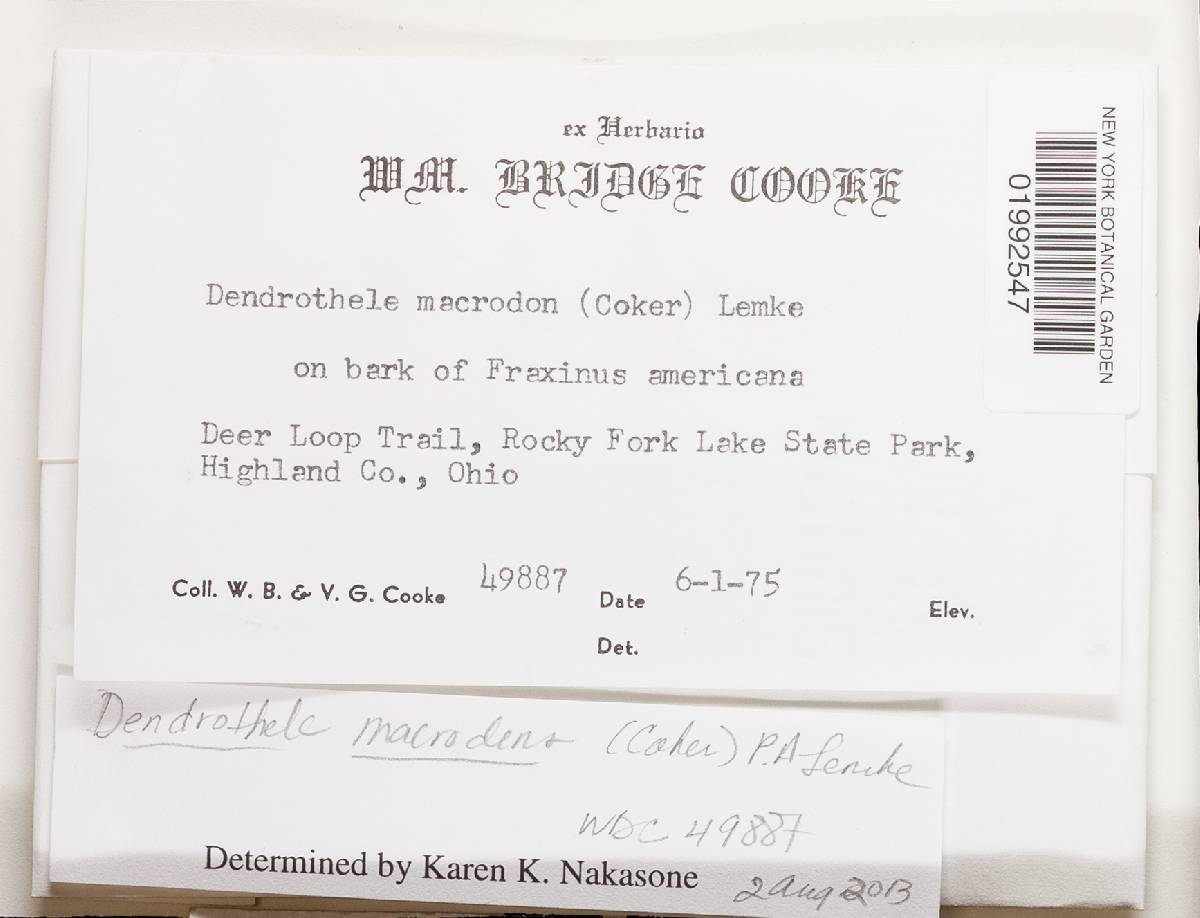 ex Herbario
WM. BRIDGE COOKE
NEW YORK BOTANICAL GARDEN
01992547
Dendrothele macrodon (Coker) Lemke
on bark of Fraxinus americana
Deer Loop Trail, Rocky Fork Lake State Park,
Highland Co., Ohio
Coll. W. B. & V. G. Cooke 49887 Date 6-1-75 Elev.
Det.
Dendrothele macrodens (Coker) P.A Lemke
WBC 49887
Determined by Karen K. Nakasone 2 Aug 2013